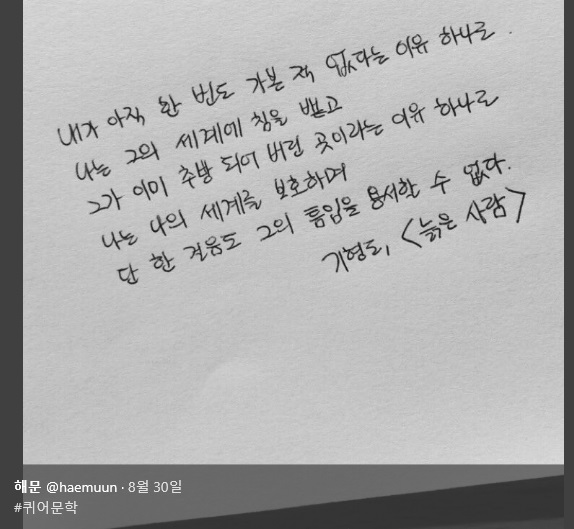 내가 아직 한 번도 가본 적 없다는 이유 하나로.
나는 그의 세계에 침을 뱉고
그가 이미 추방 되어 버린 곳이라는 이유 하나로
나는 나의 세계를 보호하며
단 한 걸음도 그의 틈입을 용서할 수 없다.
기형도, <늙은 사람>
해문 @haemuun · 8월 30일
#퀴어문학